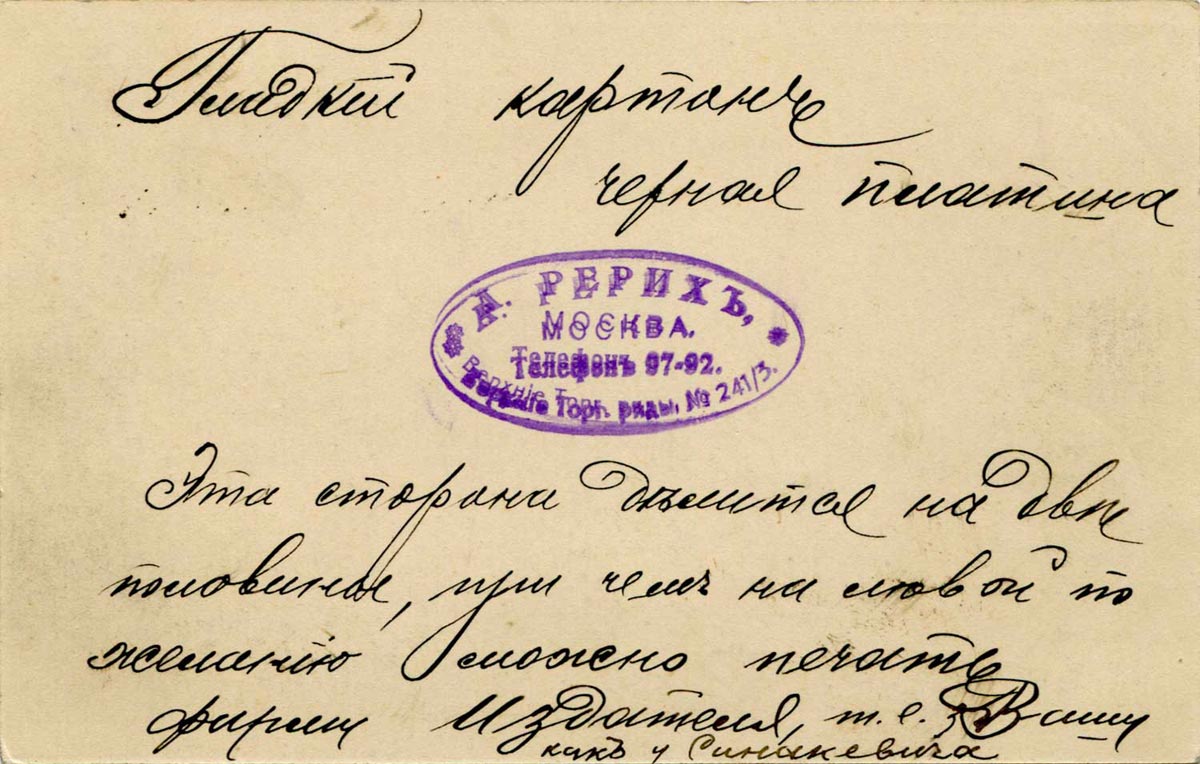 Гладкій картонъ
черная платина
А. РЕРИХЪ,
МОСКВА.
Телефонъ 97-92.
Верхніе Торг. ряды, № 241/3.
Эта сторона дѣлится на двѣ
половины, при чемъ на лѣвой по
желанію можно печать
фирмы Издателя, т.е. Вашу
какъ у Синакевича